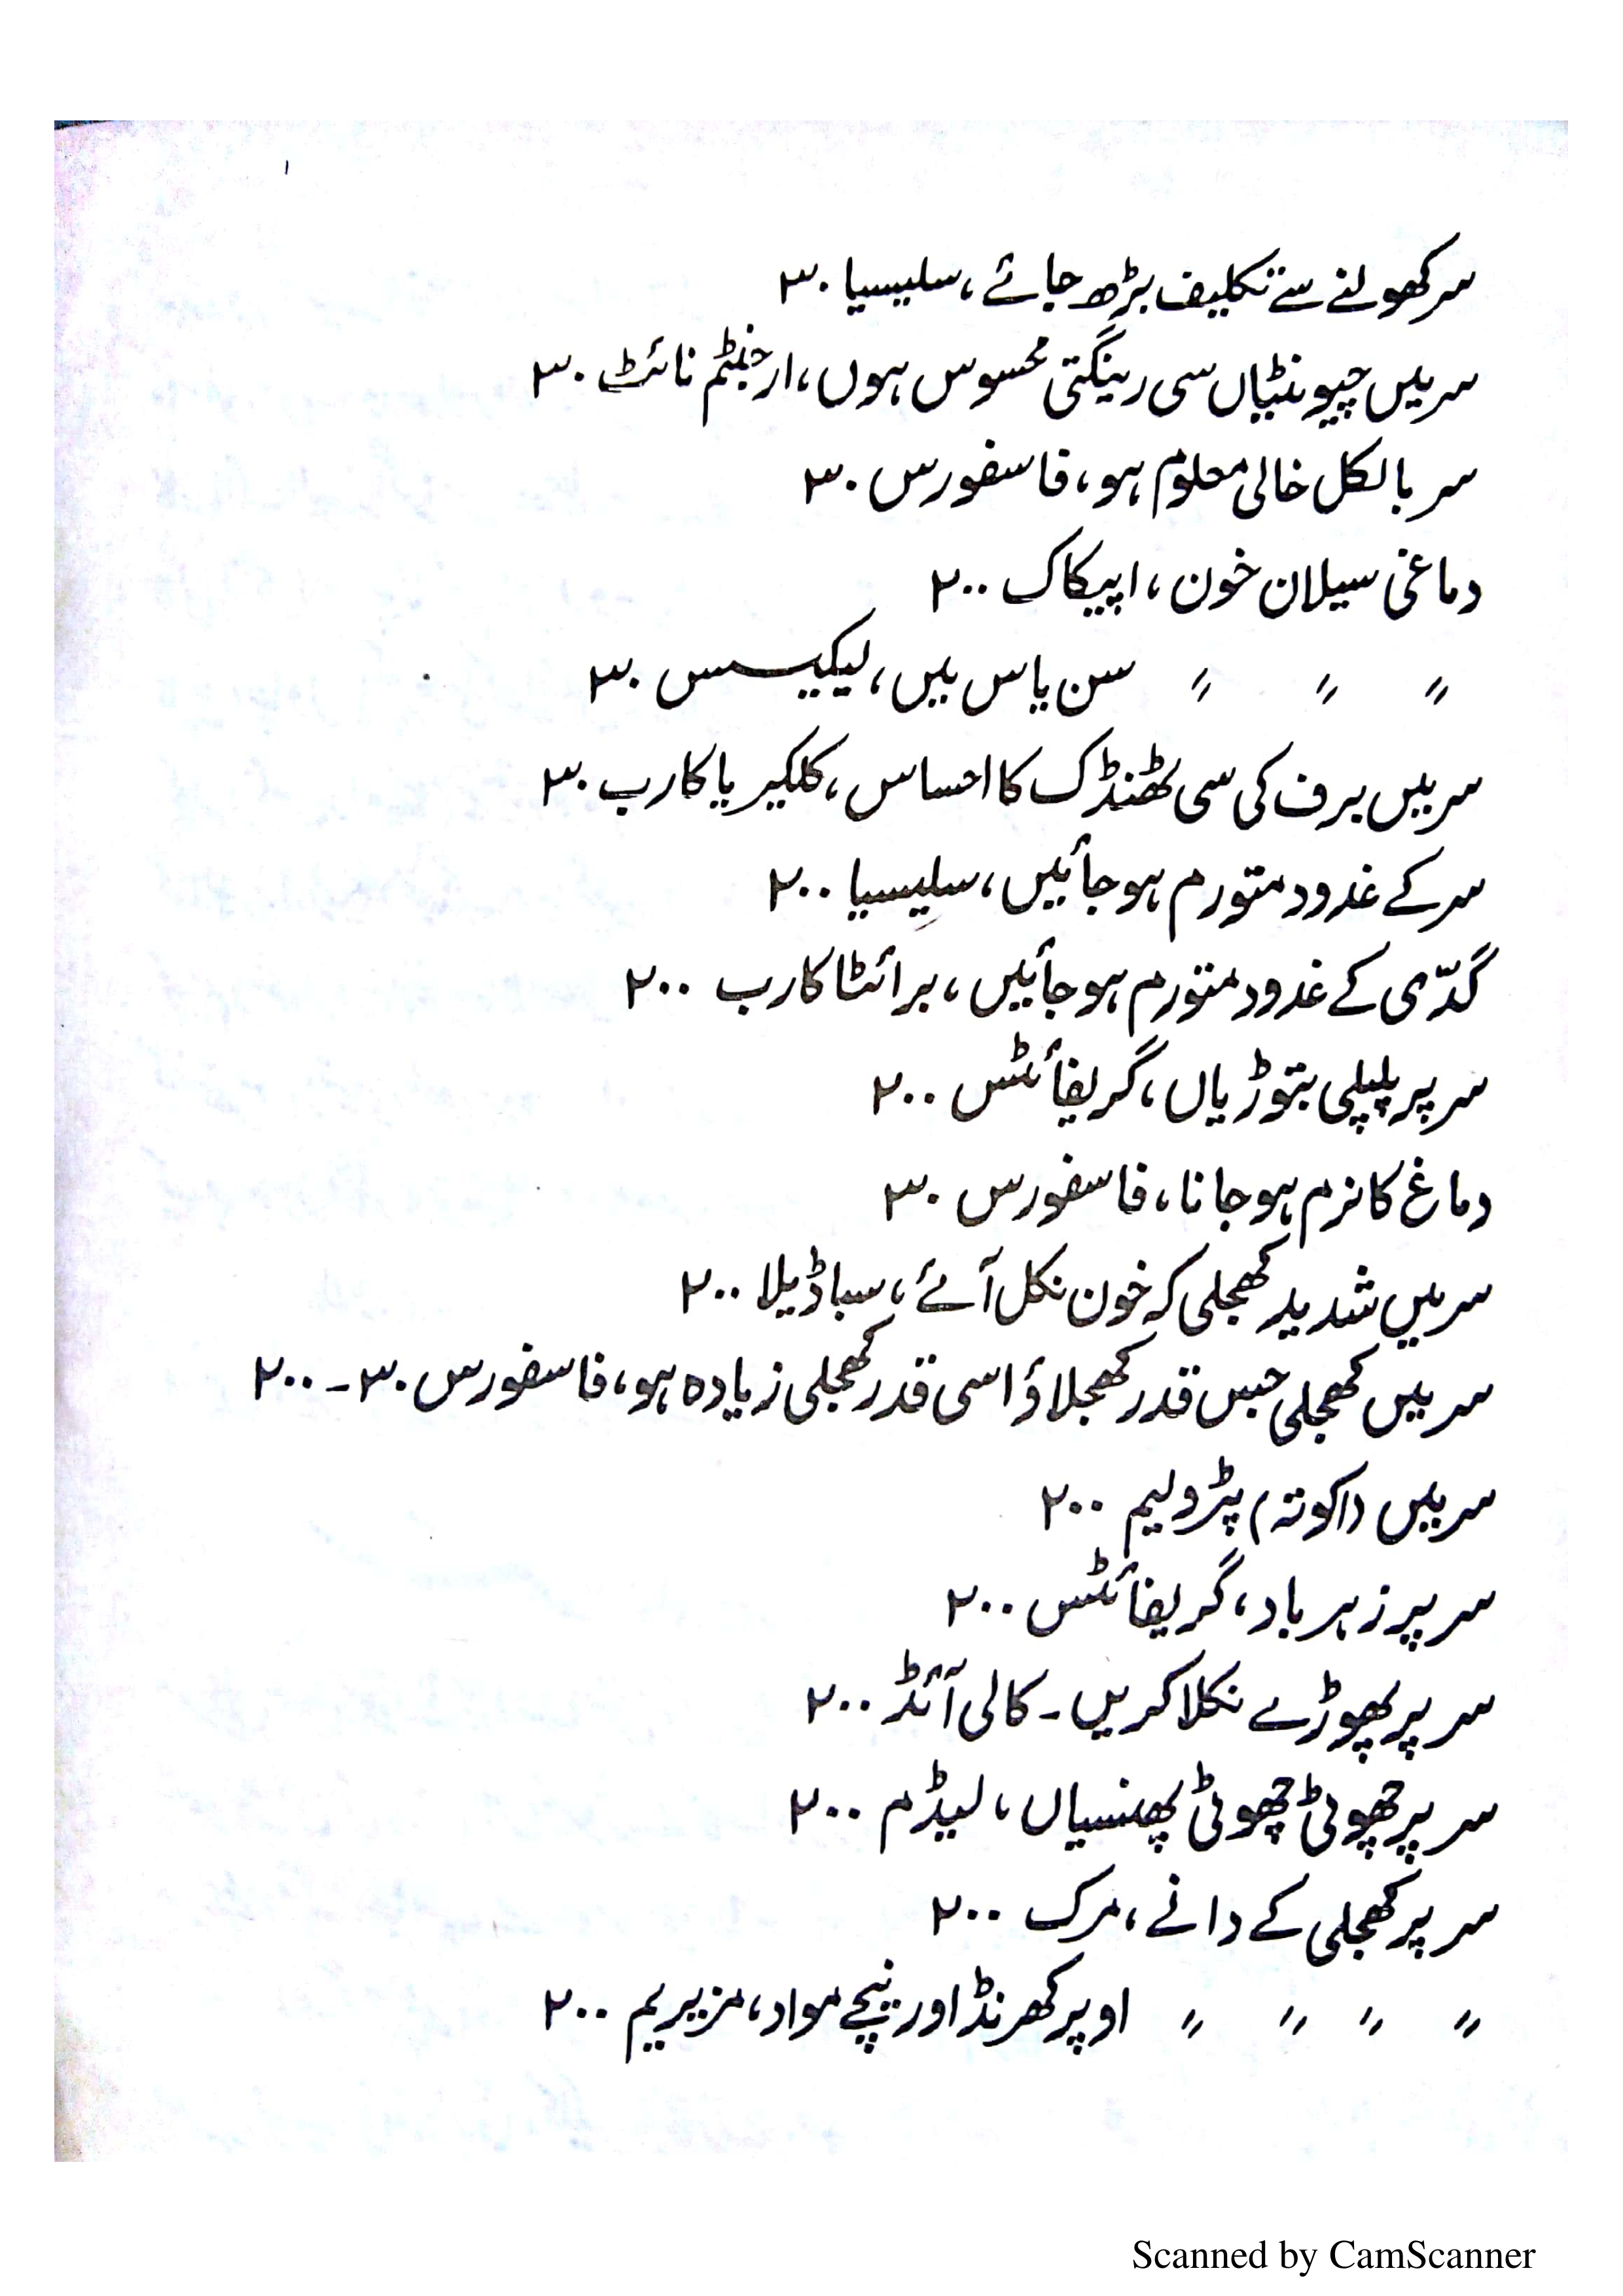 سر کھولنے سے تکلیف بڑھ جائے، سلیسیا ۳۰
سر میں چیونٹیاں سی رینگتی محسوس ہوں، ارجنٹم نائٹ ۳۰
سر بالکل خالی معلوم ہو، فاسفورس ۳۰
دماغی سیلان خون، اپیکاک ۲۰۰
〃 〃 〃 سن یاس میں، لیکیسس ۳۰
سر میں برف کی سی ٹھنڈک کا احساس، کلکیریا کارب ۳۰
سر کے غدود متورم ہو جائیں، سلیسیا ۲۰۰
گدّی کے غدود متورم ہو جائیں، برائٹا کارب ۲۰۰
سر پر پلپلی بتوڑیاں، گریفائٹس ۲۰۰
دماغ کا نرم ہو جانا، فاسفورس ۳۰
سر میں شدید کھجلی کہ خون نکل آئے، سباڈیلا ۲۰۰
سر میں کھجلی جس قدر کھجلاؤ اسی قدر کھجلی زیادہ ہو، فاسفورس ۳۰ - ۲۰۰
سر میں (اکوتہ) پٹرولیم ۲۰۰
سر پر زہر باد، گریفائٹس ۲۰۰
سر پر پھوڑے نکلا کریں - کالی آئڈ ۲۰۰
سر پر چھوٹی چھوٹی پھنسیاں، لیڈم ۲۰۰
سر پر کھجلی کے دانے، مرک ۲۰۰
〃 〃 〃 〃 اوپر کھرنڈ اور نیچے مواد، مزیریم ۲۰۰
Scanned by CamScanner